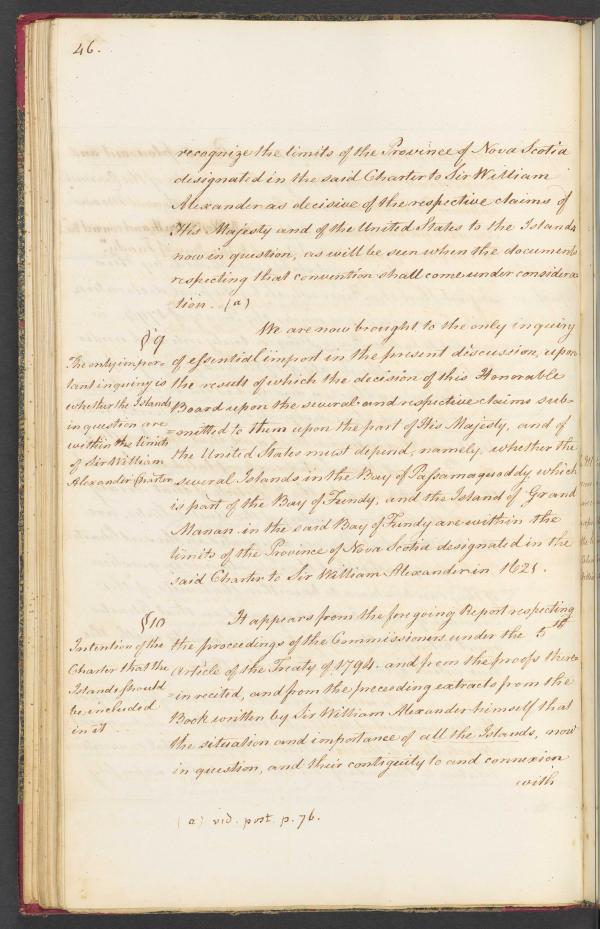 46.
recognize the limits of the Province of Nova Scotia
designated in the said Charter to Sir William
Alexander as decisive of the respective claims of
His Majesty and of the United States to the Islands
now in question, as will be seen when the documents
respecting that convention shall come under considera=
tion. (a)
§ 9
The only impor=
tant inquiry is
whether the Islands
in question are
within the limits
of Sir William
Alexander Charter
We are now brought to the only inquiry
of essential import in the present discussion, upon
the result of which the decision of this Honorable
Board upon the several and respective claims sub=
=mitted to them upon the part of His Majesty, and of
the United States must depend, namely, whether the
several Islands in the Bay of Passamaquoddy which
is part of the Bay of Fundy, and the Island of Grand
Manan in the said Bay of Fundy are within the
limits of the Province of Nova Scotia designated in the
said Charter to Sir William Alexander in 1621.
§ 10
Intention of the
Charter that the
Islands should
be included
in it
It appears from the foregoing Report respecting
the proceedings of the Commissioners under the 5th
Article of the Treaty of 1794. and from the proofs there=
=in recited, and from the preceeding extracts from the
Book written by Sir William Alexander himself that
the situation and importance of all the Islands, now
in question, and their contiguity to and connexion
with
(a) vid. post. p. 76.